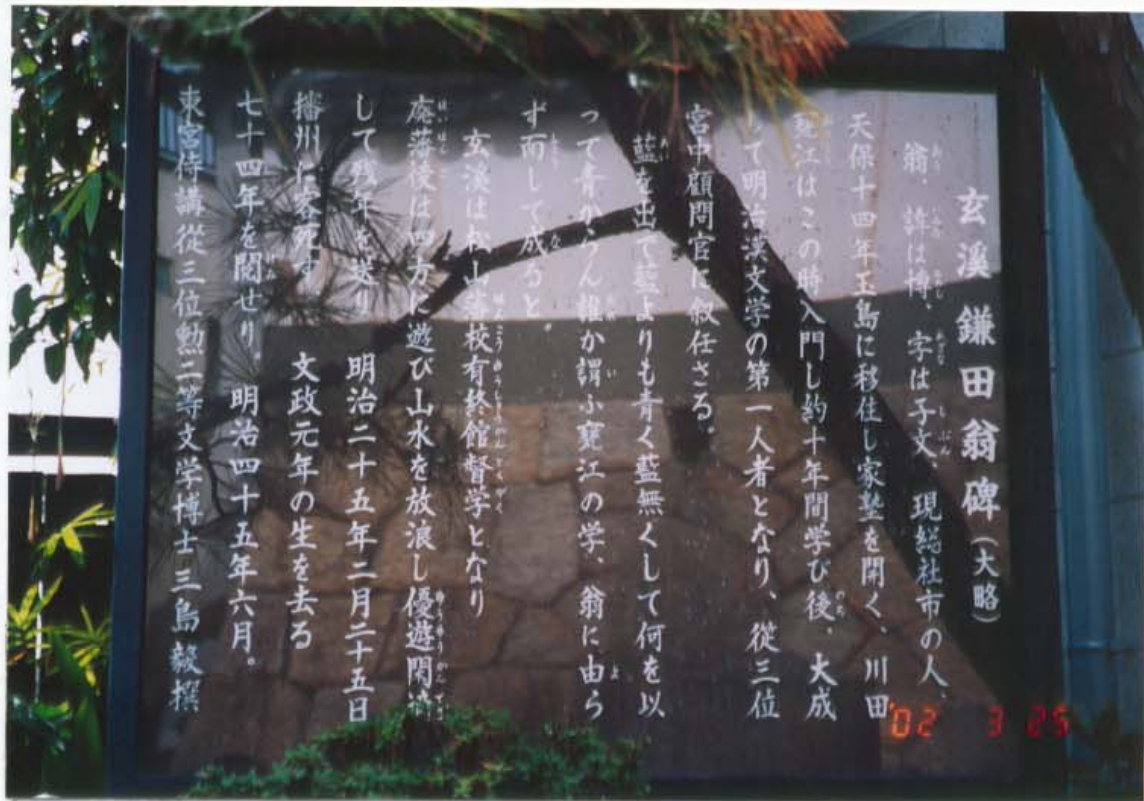 玄溪鎌田翁碑（大略）
翁、諱は博、字は子文　現総社市の人、
天保十四年玉島に移住し家塾を開く、川田
甕江はこの時入門し約十年間学び後、大成
して明治漢文学の第一人者となり、従三位
宮中顧問官に叙任さる。
藍を出て藍よりも青く藍無くして何を以
って青からん誰か謂ふ甕江の学、翁に由ら
ず而して成ると。
玄溪は松山藩校有終館督学となり
廃藩後は四方に遊び山水を放浪し優遊閑適
して残年を送り　明治二十五年二月二十五日
播州に客死す　文政元年の生を去る
七十四年を閲せり。　明治四十五年六月。
東宮侍講従三位勲二等文学博士三島毅撰
'02 3 25